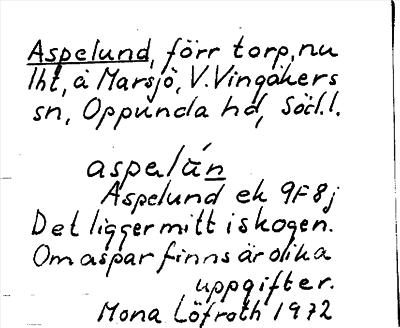 Aspelund, förr torp, nu
lht, å Marsjö, V. Vingåkers
sn, Oppunda hd, Södl.
aspalún
Aspelund ek 9F8j
Det ligger mitt i skogen.
Om aspar finns är olika
uppgifter.
Mona Löfroth 1972